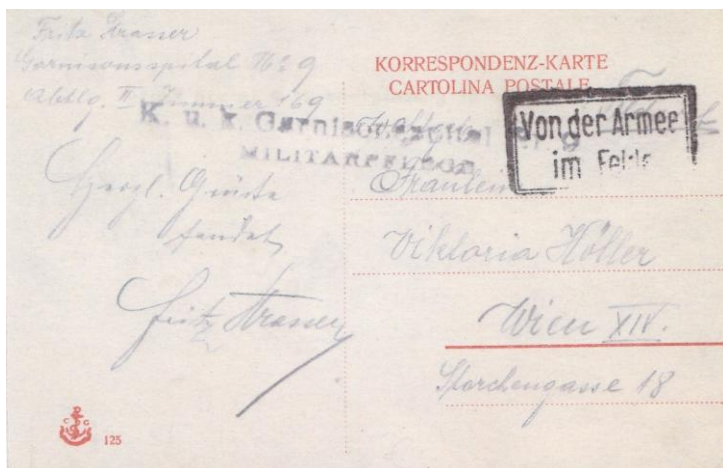 Fritz Strasser
Garnisonsspital No 9
Abtlg. II Zimmer 169
K. u. k. Garnisonsspital No. 9
MILITÄRPFLEGE
Herzl. Grüße
sendet
Fritz Strasser
125
KORRESPONDENZ-KARTE
CARTOLINA POSTALE
Von der Armee
im Felde
Fräulein
Viktoria Höller
Wien XIV.
Storchengasse 18